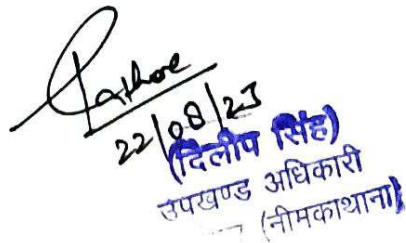 Rathore
22/08/23
(दिलीप सिंह)
उपखण्ड अधिकारी
(नीमकाथाना)